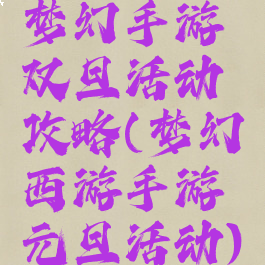 梦幻手游
双旦活动
攻略(梦幻
西游手游
元旦活动)